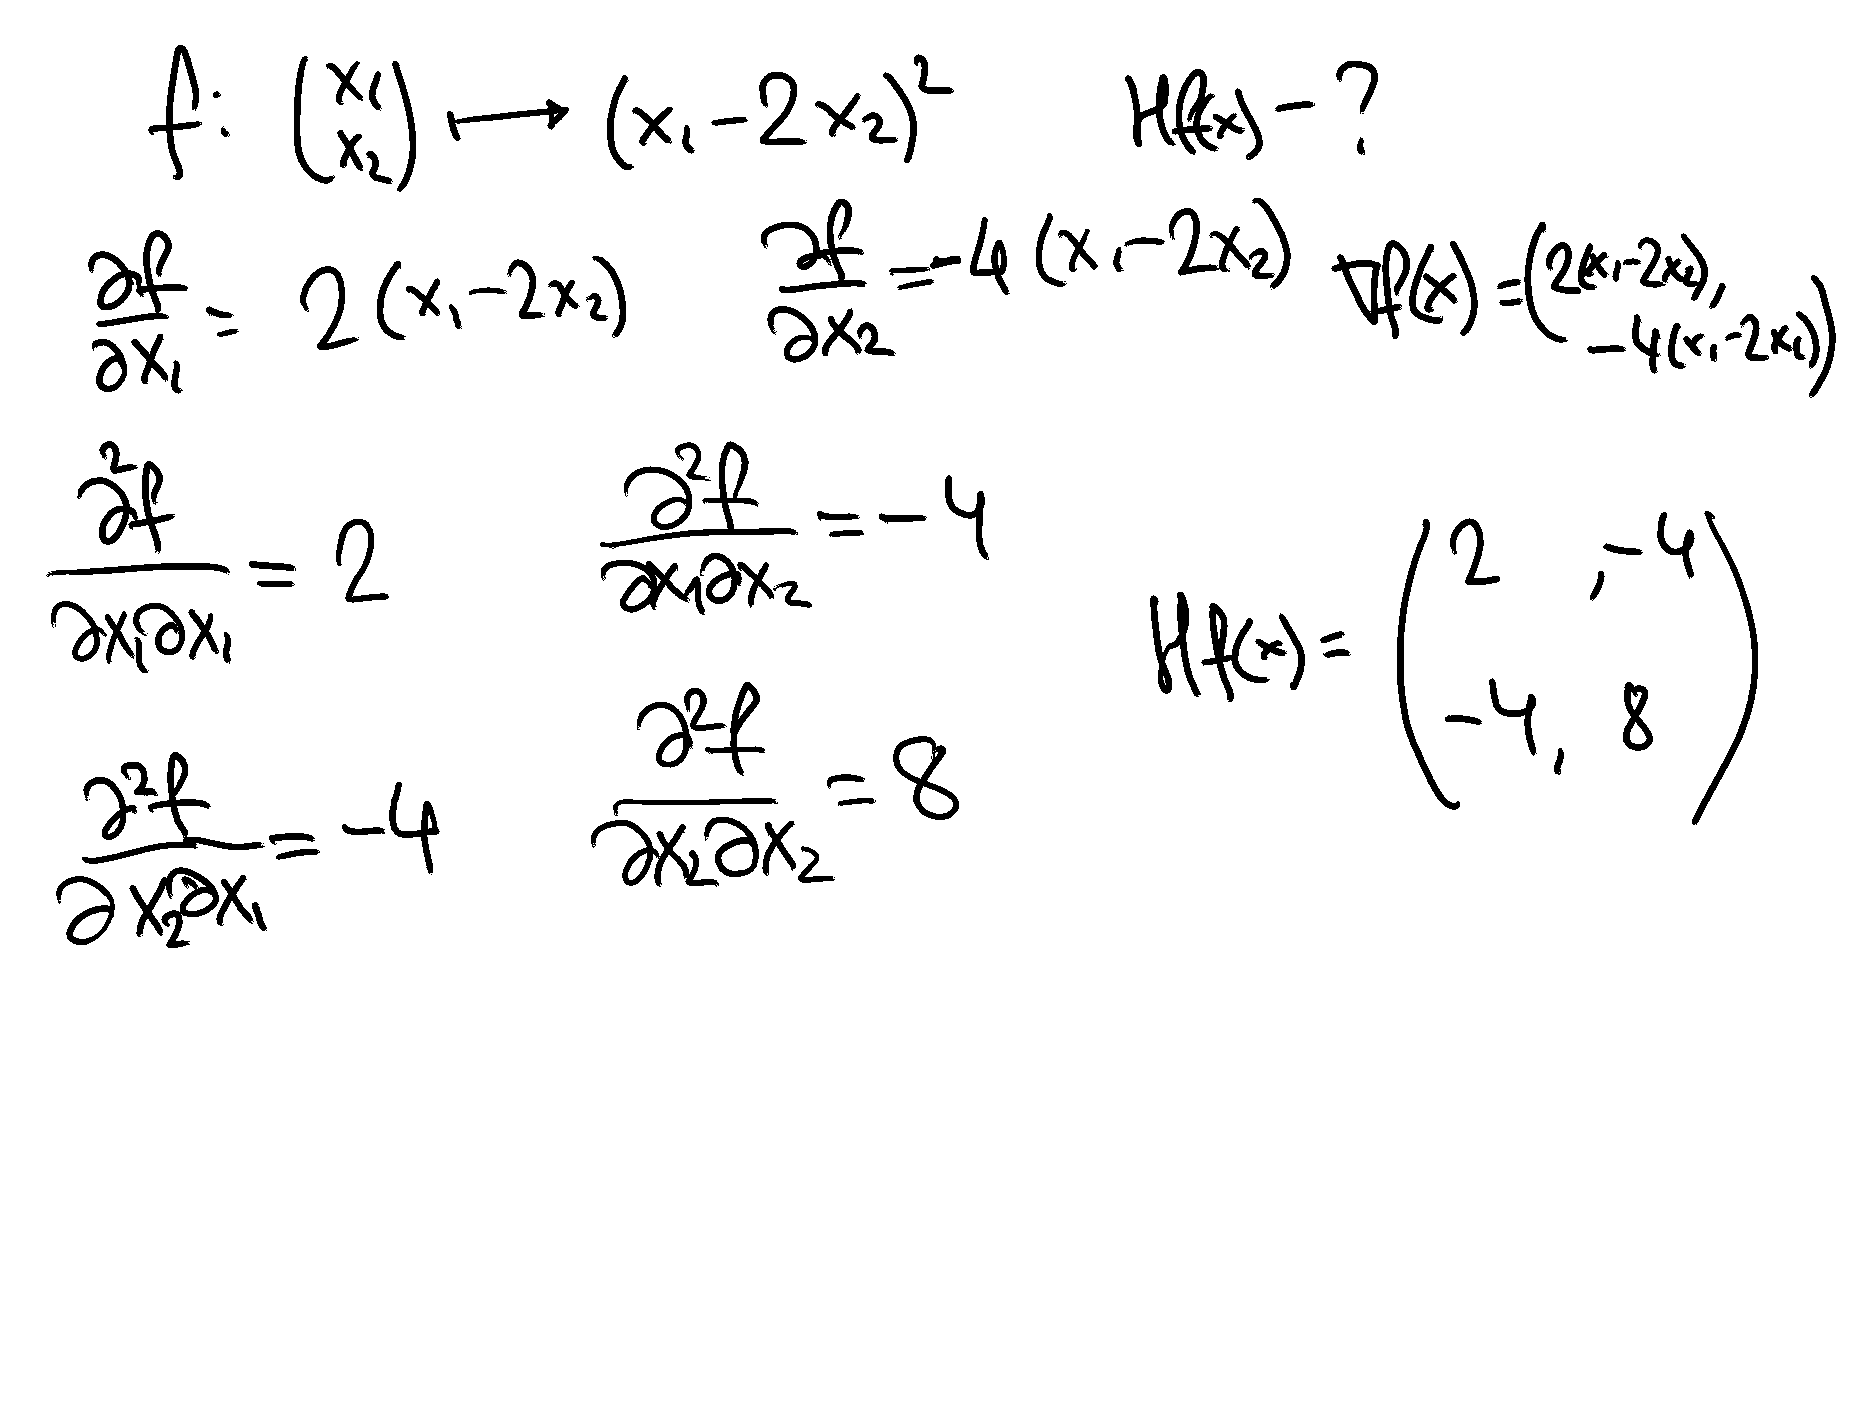 f: (x₁ x₂) ↦ (x₁ - 2x₂)² Hf(x) - ?
∂f/∂x₁ = 2(x₁ - 2x₂) ∂f/∂x₂ = -4(x₁ - 2x₂) ∇f(x) = (2(x₁ - 2x₂), -4(x₁ - 2x₁))
∂²f/∂x₁∂x₁ = 2 ∂²f/∂x₁∂x₂ = -4
Hf(x) = (2, -4
-4, 8)
∂²f/∂x₂∂x₁ = -4 ∂²f/∂x₂∂x₂ = 8